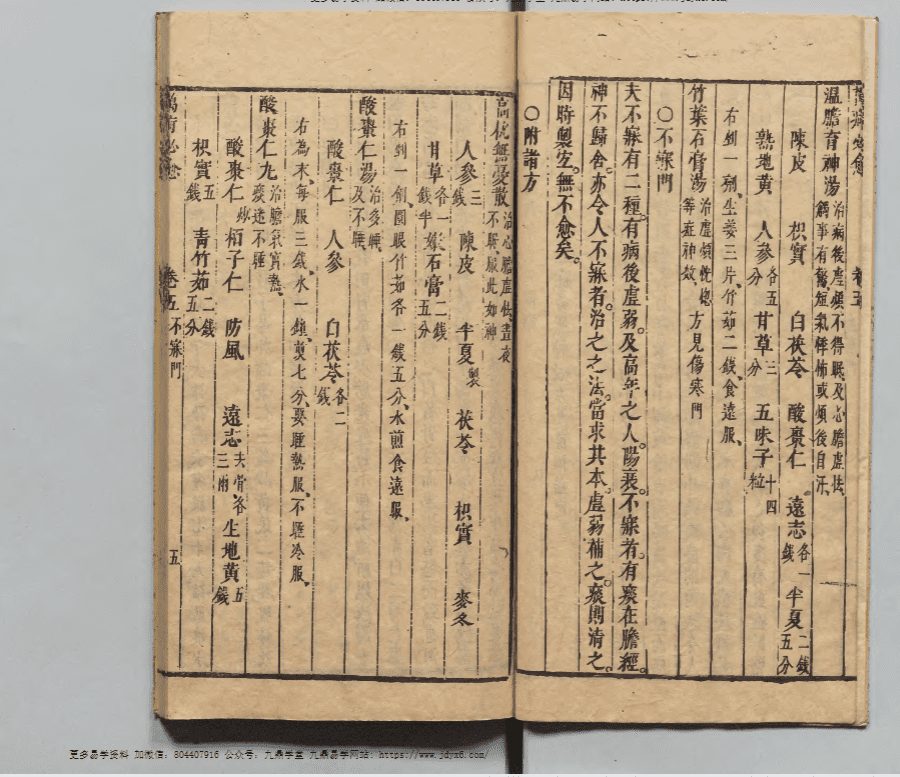 温膽育神湯 治病後虛煩不得眠及心膽虛怯觸事有驚短氣悸怖或煩後自汗
陳皮 枳實 白茯苓 酸棗仁 遠志各一錢 半夏二錢五分
熟地黃 人參各五分 甘草三分 五味子十四粒
右剉一劑、生姜三片、竹茹二錢、食遠服、
竹葉石膏湯 治虛煩恍惚等症神效、方見傷寒門
○不寐門
夫不寐有二種。有病後虛弱。及高年之人。陽衰。不寐者。有痰在膽經。
神不歸舍。亦令人不寐者。治之之法。當求其本。虛弱補之。痰則清之。
因時製宜。無不愈矣。
○附諸方
高枕無憂散 治心膽虛怯晝夜不睡、服此如神
人參三錢 陳皮 半夏製 茯苓 枳實 麥冬
甘草各一錢半 石膏二錢五分
右剉一劑、圓眼竹茹各一錢五分、水煎食遠服、
酸棗仁湯 治多睡及不睡、
酸棗仁 人參 白茯苓各二錢
右為末、每服三錢、水一鍾、煎七分、要睡熱服、不睡冷服、
酸棗仁丸 治膽氣實熱、痰迷不睡
酸棗仁炒 栢子仁 防風 遠志去骨各三兩 生地黃五錢
枳實五錢 青竹茹二錢五分
萬病必愈 卷五 不寐門 五
更多易学资料 加微信：804407916 公众号：九鼎学堂 九鼎易学网站：https://www.jdyx6.com/